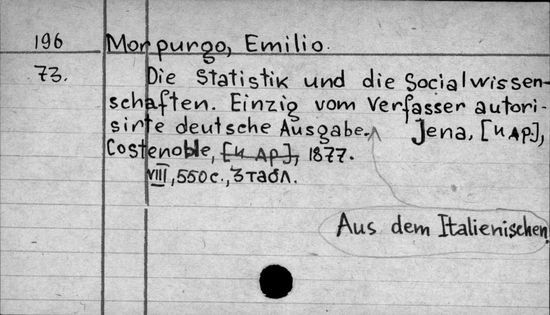 196 Morpurgo, Emilio.
73. Die Statistik und die Socialwissen-
schaften. Einzig vom Verfasser autori-
sirte deutsche Ausgabe. Jena, [и др],
Costenoble, [и др], 1877.
VIII, 550 с., 3 табл.
Aus dem Italienischen